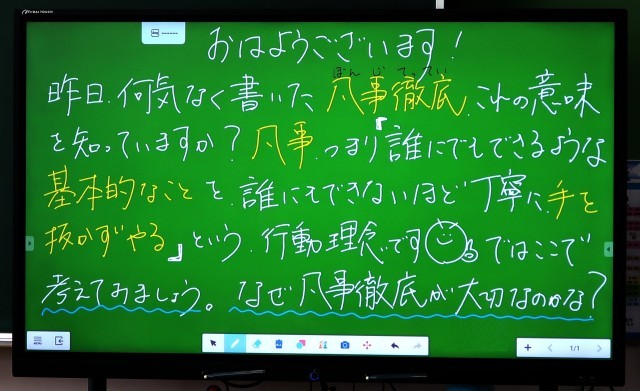 おはようございます!
ぼんじてってい
昨日、何気なく書いた 凡事徹底、これの意味
を知っていますか?凡事、つまり『誰にでもできるような
基本的なことを、誰にもできないほど丁寧に、手を
抜かずやる』という、行動理念です では ここで
考えてみましょう。なぜ凡事徹底が大切なのかな?
1/1